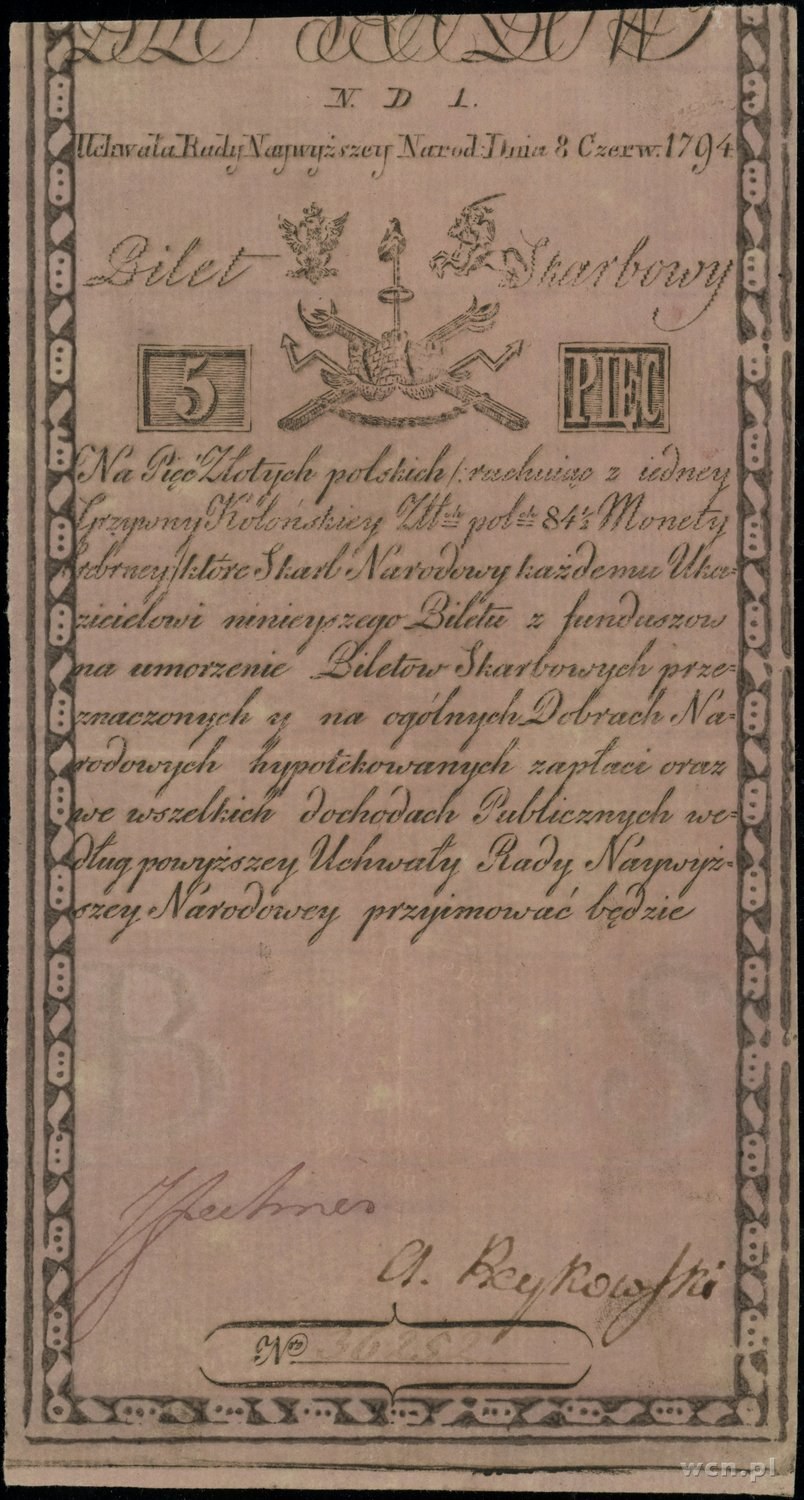 N. D 1.
Uchwała Rady Naywyższey Narod: Dnia 8 Czerw: 1794
Bilet Skarbowy
5 PIĘC
Na Pięć Złotych polskich /: rachuiąc z iedney
Grzywny Kolońskiey Złt:ch pol:ch 84½ Monety
srebrney :/ które Skarb Narodowy każdemu Uka=
zicielowi ninieyszego Biletu z funduszow
na umorzenie Biletow Skarbowych prze=
znaczonych y na ogólnych Dobrach Na=
rodowych hypotékowanych zapłaci oraz
we wszelkich dochodach Publicznych we=
dług powyższey Uchwały Rady Naywyż=
szey Narodowey przyimować będzie
B S
A. Reykowski
Nro 36252
wcn.pl